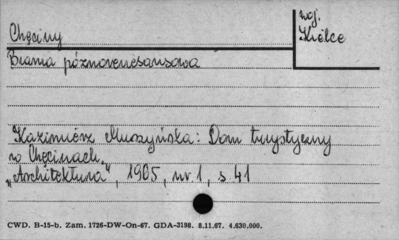 Chęciny
woj.
Kielce
Brama późnorenesansowa
Kazimierz Muszyński: Dom turystyczny
w Chęcinach.
"Architektura", 1905, nr 1, s 41
CWD. B-15-b. Zam. 1726-DW-On-67. GDA-3198. 8.11.67. 4.630.000.